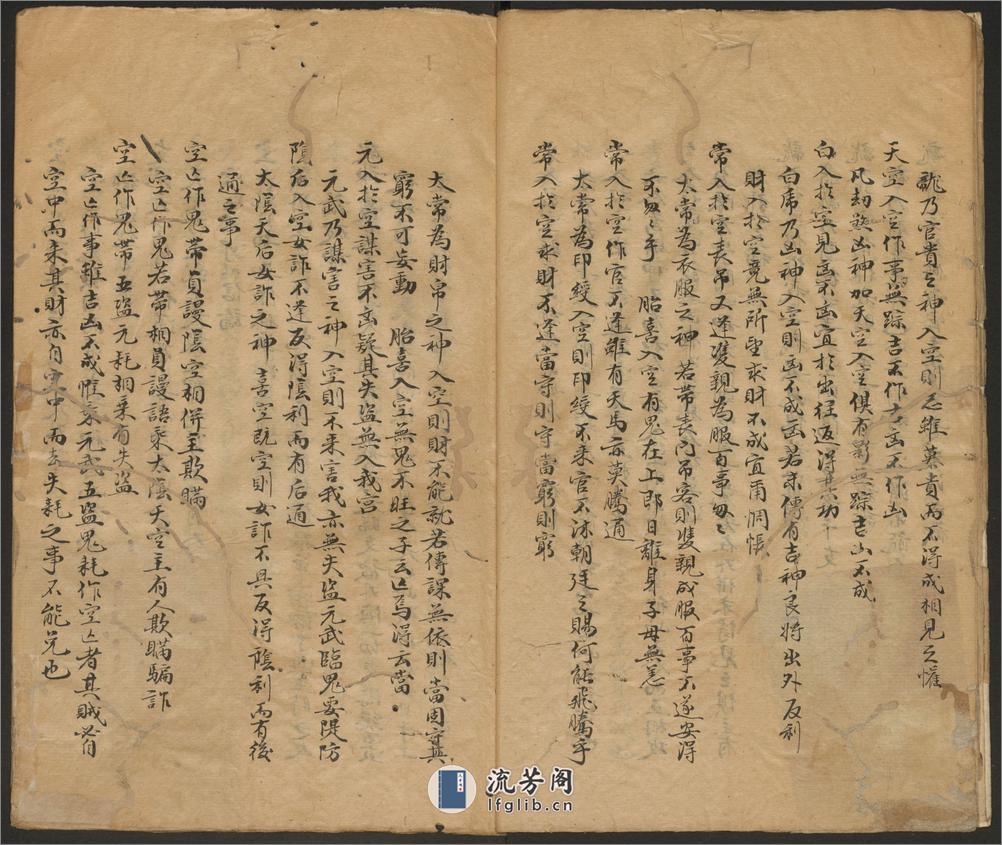 龍乃官貴之神入空則忌雖慕貴而不得成相見之懽
天空入空作事無踪吉不作吉凶不作凶
凡劫煞凶神加天空入空俱有影無踪吉凶不成
白入於空見凶不凶宜於出往返得其功
白虎乃凶神入空則凶不成凶若末傳有吉神良將出外反利
財入於空竟無所望求財不成宜甭惆悵
常入於空喪吊又逢雙親為服百事匆々
太常為衣服之神若帶喪門吊客則雙親成服百事不遂安得
不匆々乎 胎喜入空有鬼在上即日離身子母無恙
常入於空作官不逢雖有天馬亦莫騰通
太常為印綬入空則印綬不來官不沐朝廷之賜何能飛騰乎
常入於空求財不逢當守則守當窮則窮
太常為財帛之神入空則財不能就若傳課無依則當固守其
窮不可妄動 胎喜入空無鬼不旺之子云亡焉得云當
元入於空謀害不凶疑其失盜無入我宮
元武乃謀害之神入空則不來害我亦無失盜元武臨鬼要隄防
陰后入空女詐不逢反得陰利而有后通
太陰天后女詐之神喜空既空則女詐不具反得陰利而有後
通之事
空亡作鬼帶貞謾陰空相併主欺瞞
空亡作鬼若帶相貞謾語乘太陰天空主有人欺瞞騙詐
空亡作鬼帶五盜元耗相乘有失盜
空亡作事雖吉凶不成惟乘元武五盜鬼耗作空亡者其賊必自
空中而來其財亦自空中而去失耗之事不能免也
流芳阁
lfglib.cn